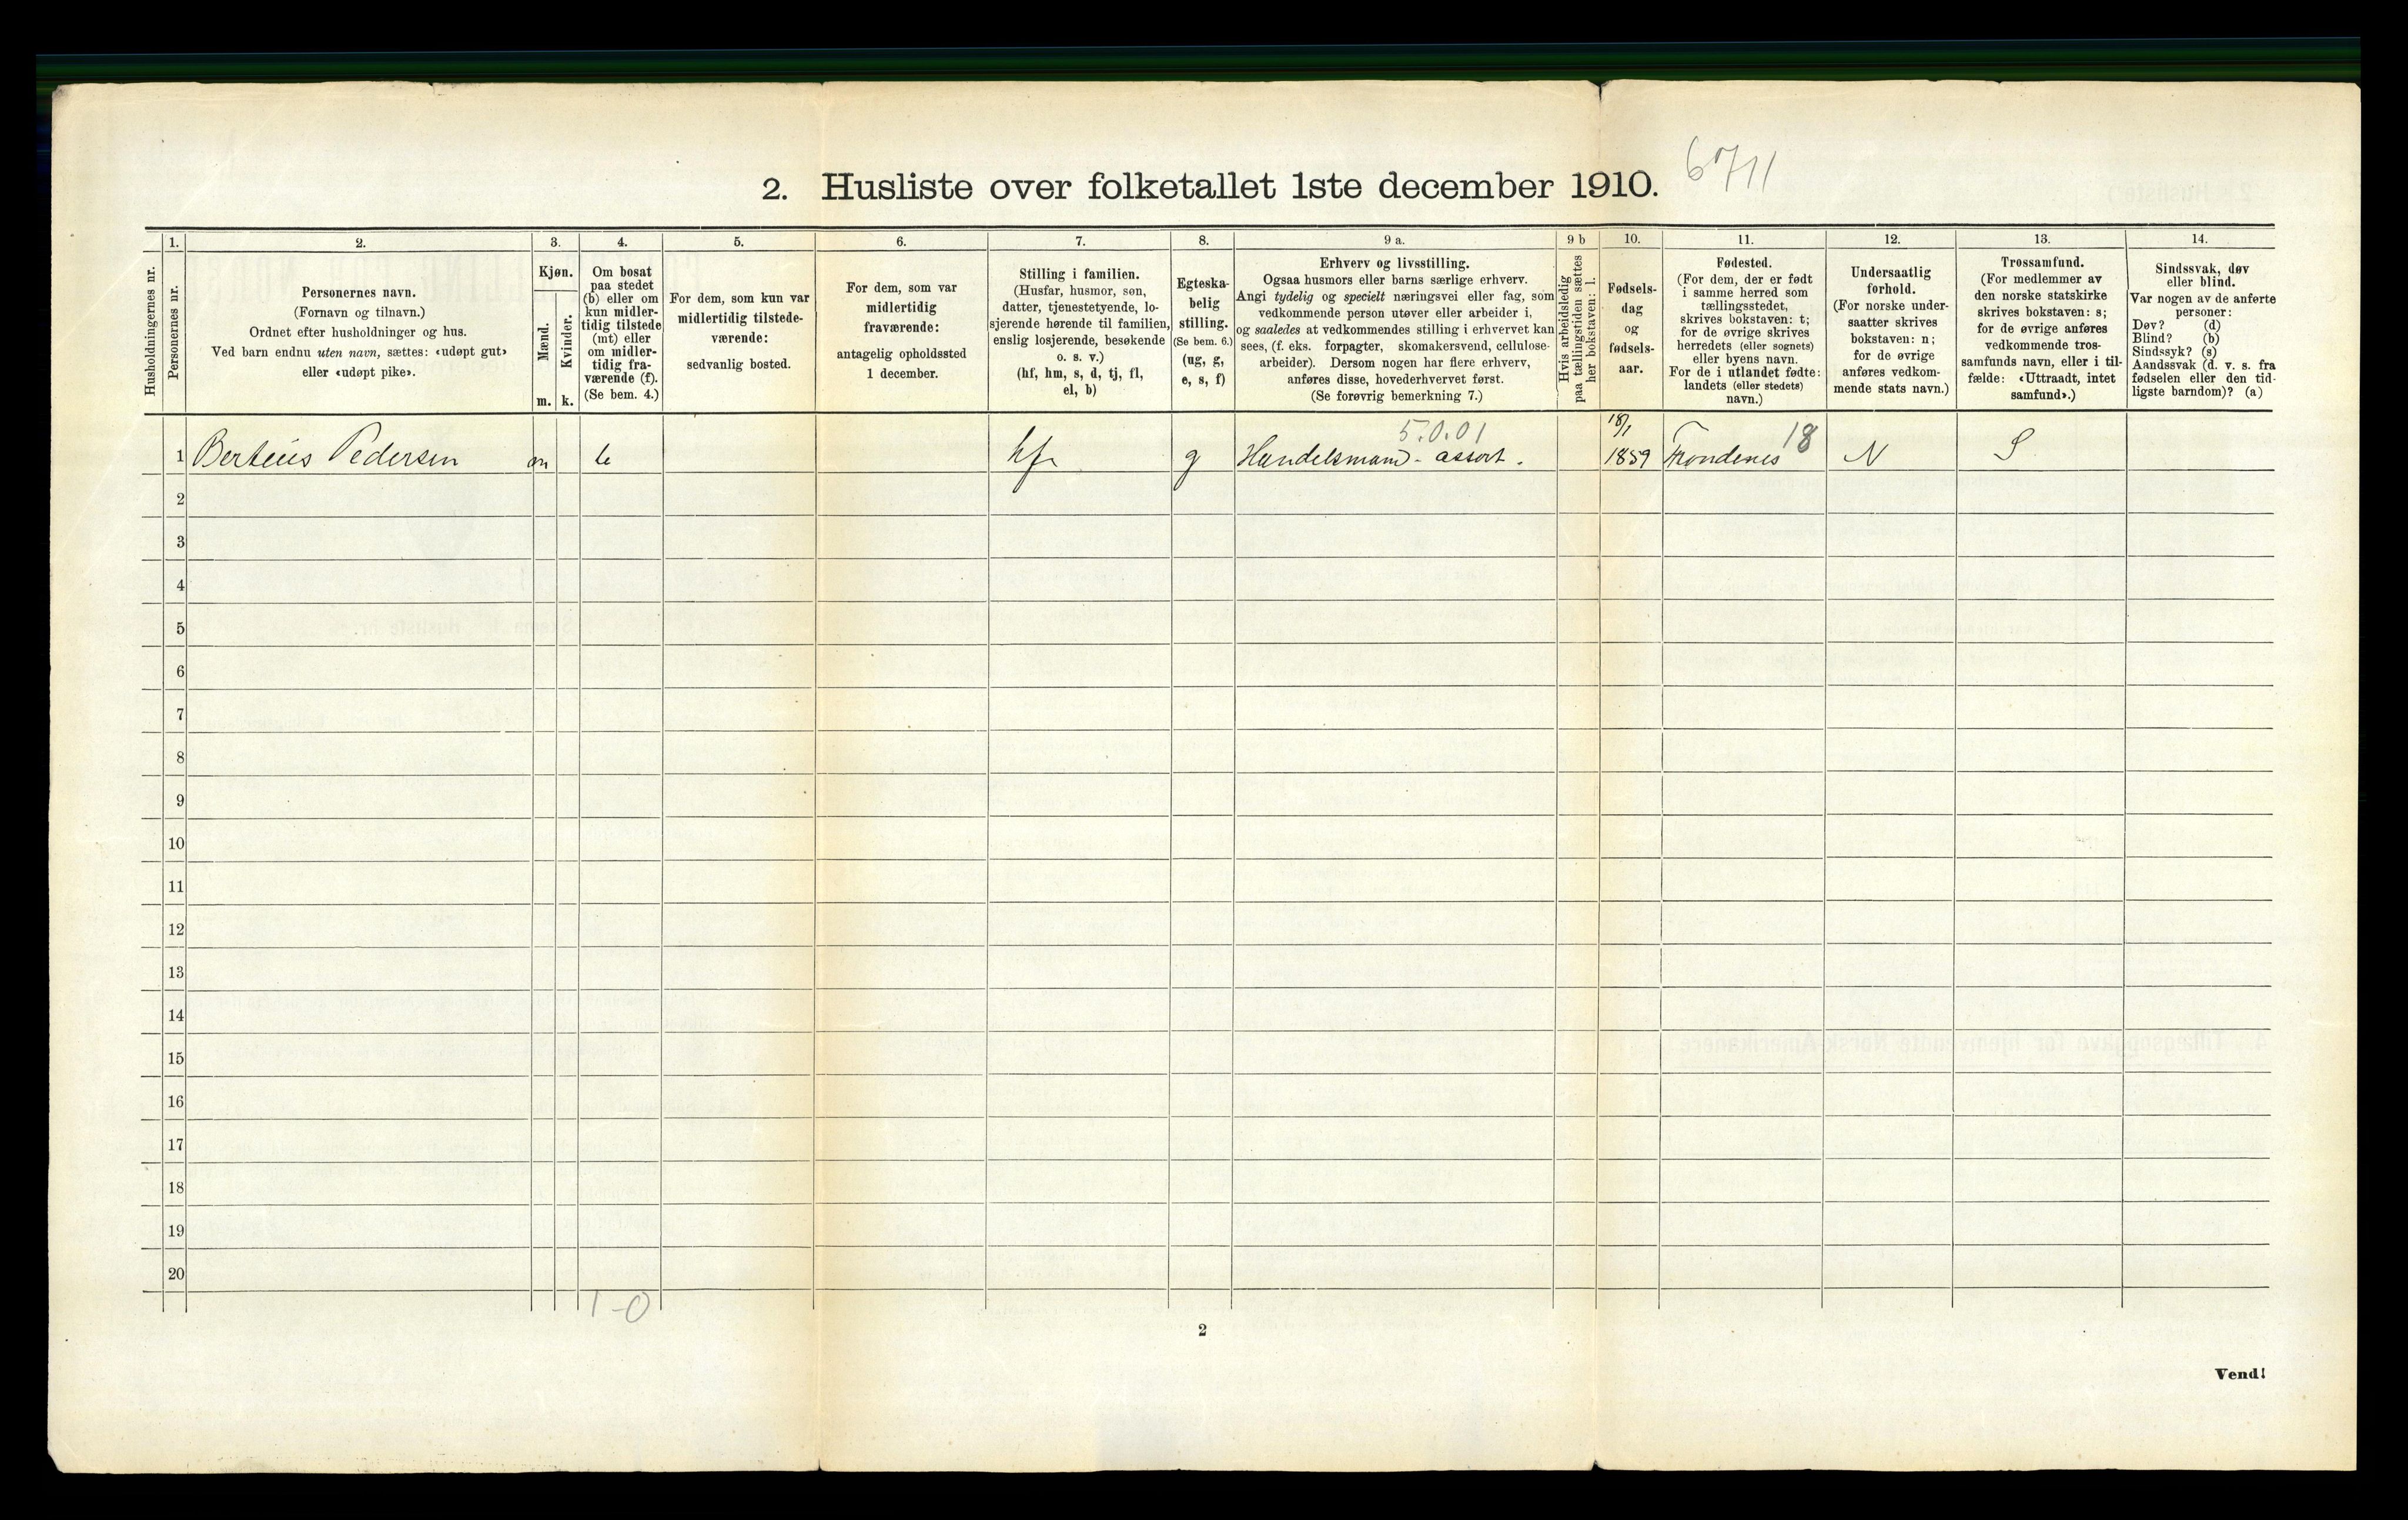 2. Husliste over folketallet 1ste december 1910.
6711
1. 2. 3. 4. 5. 6. 7. 8. 9 a. 9 b 10. 11. 12. 13. 14.
Husholdningernes nr.
Personernes nr.
Personernes navn.
(Fornavn og tilnavn.)
Ordnet efter husholdninger og hus.
Ved barn endnu uten navn, sættes: «udøpt gut»
eller «udøpt pike».
Kjøn.
Mænd.
Kvinder.
m. k.
Om bosat
paa stedet
(b) eller om
kun midler-
tidig tilstede
(mt) eller
om midler-
tidig fra-
værende (f).
(Se bem. 4.)
For dem, som kun var
midlertidig tilstede-
værende:
sedvanlig bosted.
For dem, som var
midlertidig
fraværende:
antagelig opholdssted
1 december.
Stilling i familien.
(Husfar, husmor, søn,
datter, tjenestetyende, lo-
sjerende hørende til familien,
enslig losjerende, besøkende
o. s. v.)
(hf, hm, s, d, tj, fl,
el, b)
Egteska-
belig
stilling.
(Se bem. 6.)
(ug, g,
e, s, f)
Erhverv og livsstilling.
Ogsaa husmors eller barns særlige erhverv.
Angi tydelig og specielt næringsvei eller fag, som
vedkommende person utøver eller arbeider i,
og saaledes at vedkommendes stilling i erhvervet kan
sees, (f. eks. forpagter, skomakersvend, cellulose-
arbeider). Dersom nogen har flere erhverv,
anføres disse, hovederhvervet først.
(Se forøvrig bemerkning 7.)
Hvis arbeidsledig
paa tællingstiden sættes
her bokstaven: l.
Fødsels-
dag
og
fødsels-
aar.
Fødested.
(For dem, der er født
i samme herred som
tællingsstedet,
skrives bokstaven: t;
for de øvrige skrives
herredets (eller sognets)
eller byens navn.
For de i utlandet fødte:
landets (eller stedets)
navn.)
Undersaatlig
forhold.
(For norske under-
saatter skrives
bokstaven: n;
for de øvrige
anføres vedkom-
mende stats navn.)
Trossamfund.
(For medlemmer av
den norske statskirke
skrives bokstaven: s;
for de øvrige anføres
vedkommende tros-
samfunds navn, eller i til-
fælde: «Uttraadt, intet
samfund».)
Sindssvak, døv
eller blind.
Var nogen av de anførte
personer:
Døv? (d)
Blind? (b)
Sindssyk? (s)
Aandssvak (d. v. s. fra
fødselen eller den tid-
ligste barndom)? (a)
5.0.01 18/1 18
1 Berteus Pedersen m b hf g Handelsmand - assort. 1859 Trondenes N S
2
3
4
5
6
7
8
9
10
11
12
13
14
15
16
17
18
19
20
1-0
2
Vend!